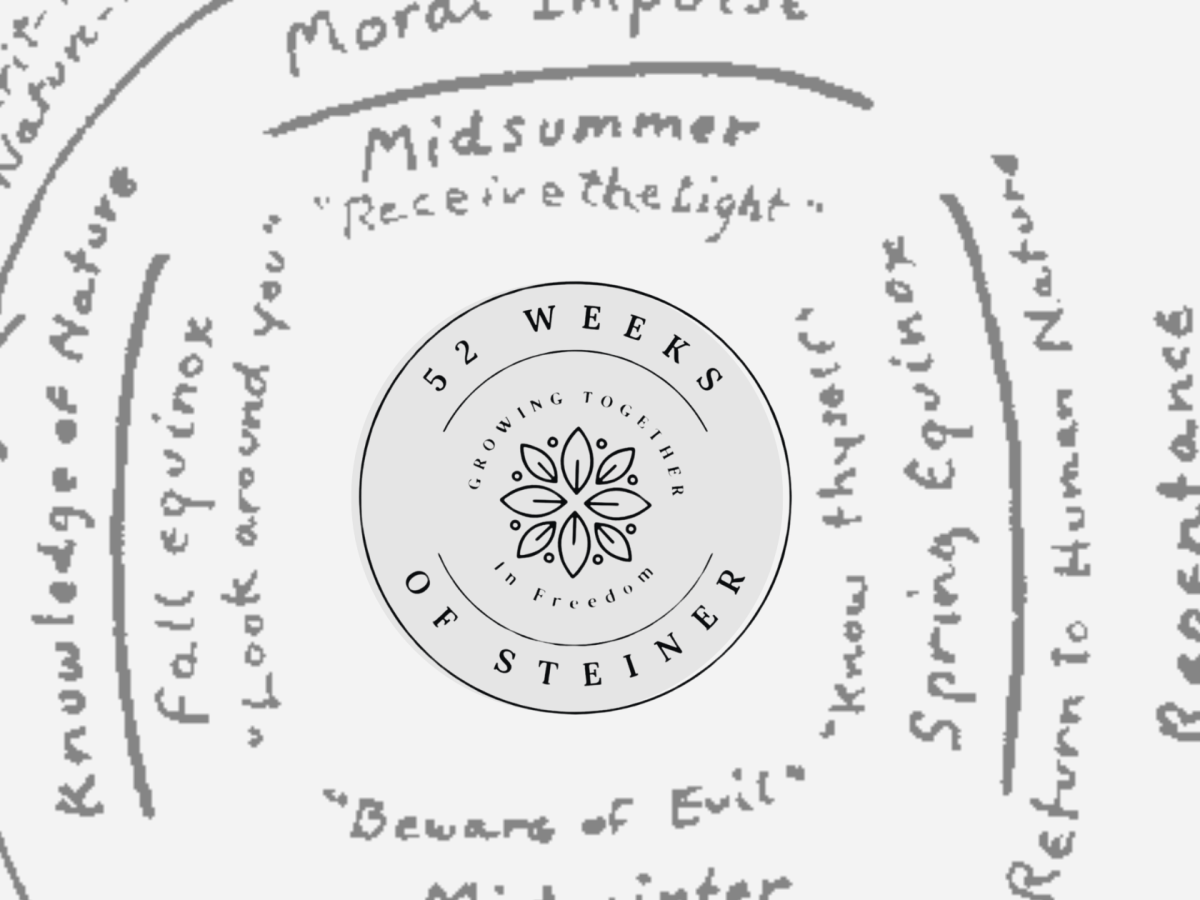 Nature
Moral Impulse
Midsummer
"Receive the Light"
Knowledge of Nature
fall equinox
"Look around you"
52 WEEKS
GROWING TOGETHER
in Freedom
OF STEINER
"know thyself"
Spring Equinox
Return To Human Nature
Repentance
"Beware of Evil"
Midwinter